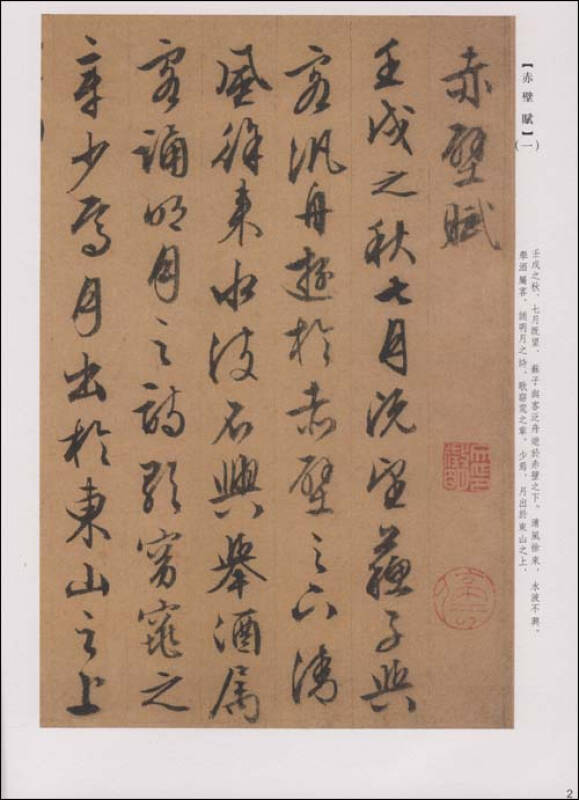 【赤壁賦】
(一)
壬戌之秋、七月既望、蘇子與客泛舟遊於赤壁之下。清風徐來、水波不興。
舉酒屬客、誦明月之詩、歌窈窕之章。少焉、月出於東山之上、
赤壁賦
壬戌之秋七月既望蘇子與
客汎舟遊於赤壁之下清
風徐來水波不興舉酒属
客誦明月之詩歌窈窕之
章少焉月出於東山之上
2